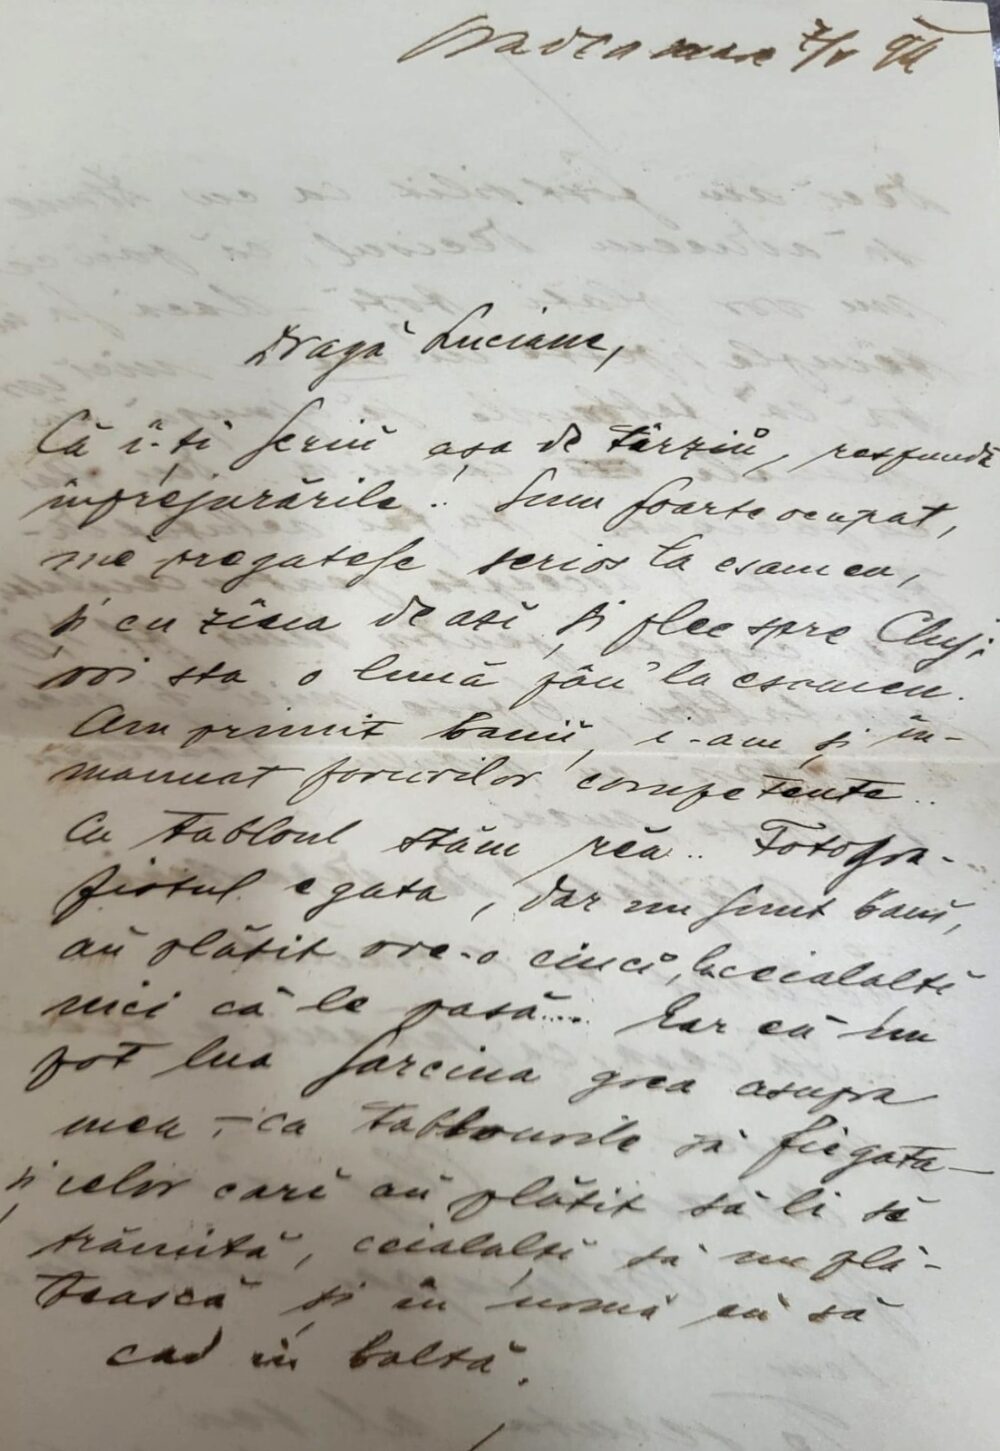 Oradea mare 7/V 911
Dragă Luciane,
Că î-ți scriŭ așa de târziŭ, respundă
împrejurările! Sum foarte ocupat,
mĕ pregatesc serios la esamen,
și cu ziua de azĭ și plec spre Cluj;
voi sta o lună pân' la esamen.
Am primit baniĭ, i-am și în-
mannat forurilor competente..
Cu tabloul stăm rĕu.. Fotogra-
fistul e gata, dar nu sunt banĭ,
aŭ plătit vre-o cincĭ, ceialalțĭ
nici că le pasă.... Ear eŭ nu
pot lua sarcina grea asupra
mea, – ca tablourile să fie gata –
și celor carĭ aŭ plătit să li sĕ
trămită, ceialalțĭ să nu plă-
tească și în urmă eŭ să
cad în baltă.